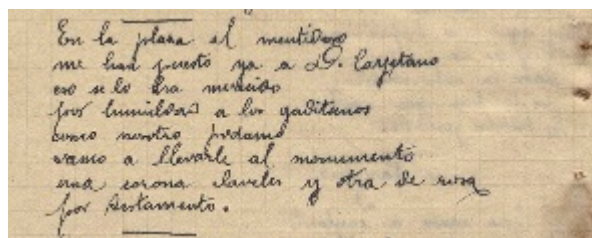 En la plasa el mentidero
me han puesto ya a D. Cayetano
eso se lo ha merecido
por humildad a los gaditanos
como nosotro podamo
vamo a llevarle al monumento
una corona claveles y otra de rosa
por testamento.